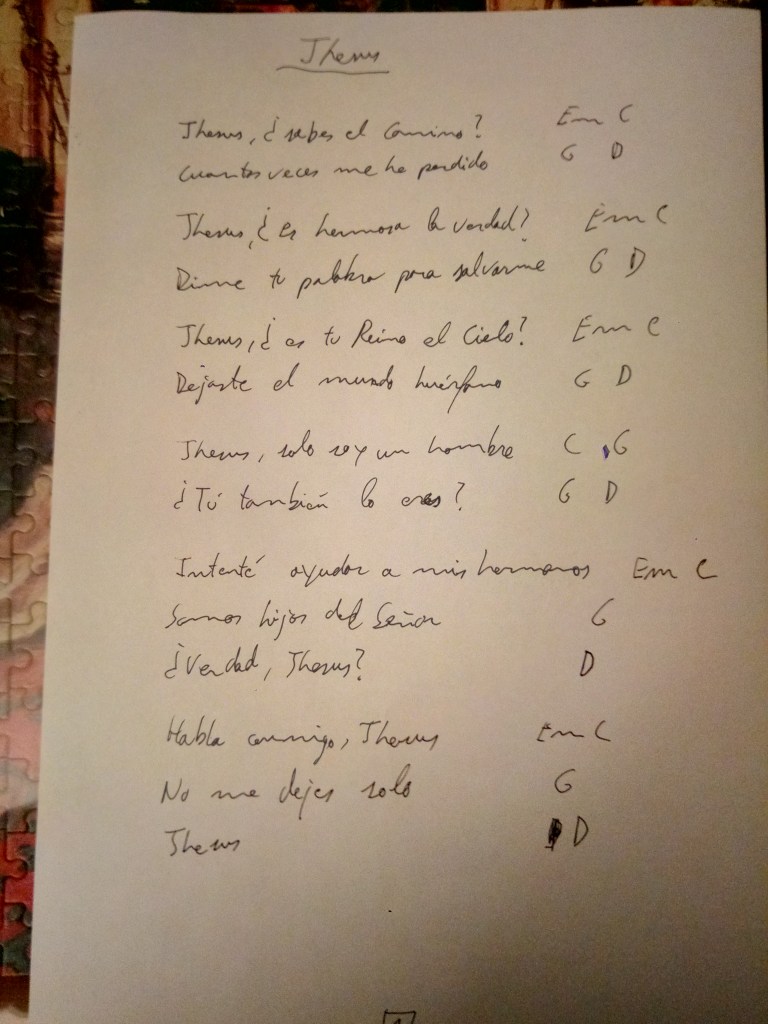 Jhesus
Jhesus, ¿sabes el Camino? Em C
Cuantas veces me he perdido G D
Jhesus, ¿es hermosa la verdad? Em C
Dime tu palabra para salvarme G D
Jhesus, ¿es tu Reino el Cielo? Em C
Dejaste el mundo huérfano G D
Jhesus, solo soy un hombre C G
¿Tú también lo eres? G D
Intenté ayudar a mis hermanos Em C
Somos hijos del Señor G
¿Verdad, Jhesus? D
Habla conmigo, Jhesus Em C
No me dejes solo G
Jhesus D